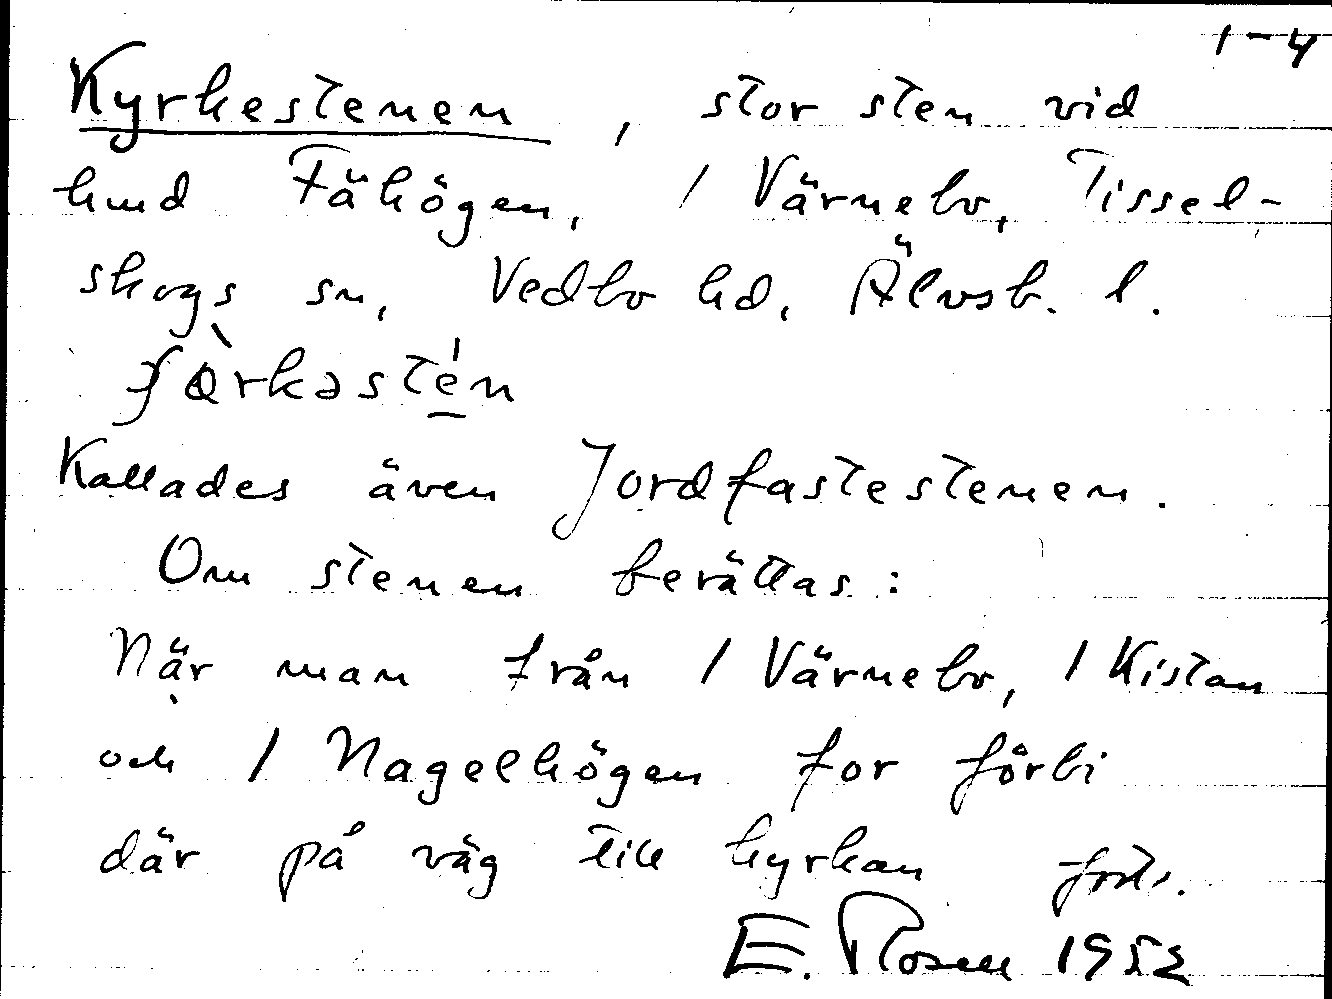 1-4
Kyrkestenen, stor sten vid
hmd Fähögen, / Värnebo, Tissel-
skogs sn, Vedbo hd, Älvsb. l.
Kallades även Jordfastestenen.
Om stenen berättas:
När man från / Värnebo, / Kistan
och / Nagelhögen for förbi
där på väg till kyrkan forts.
E. Rosen 1952